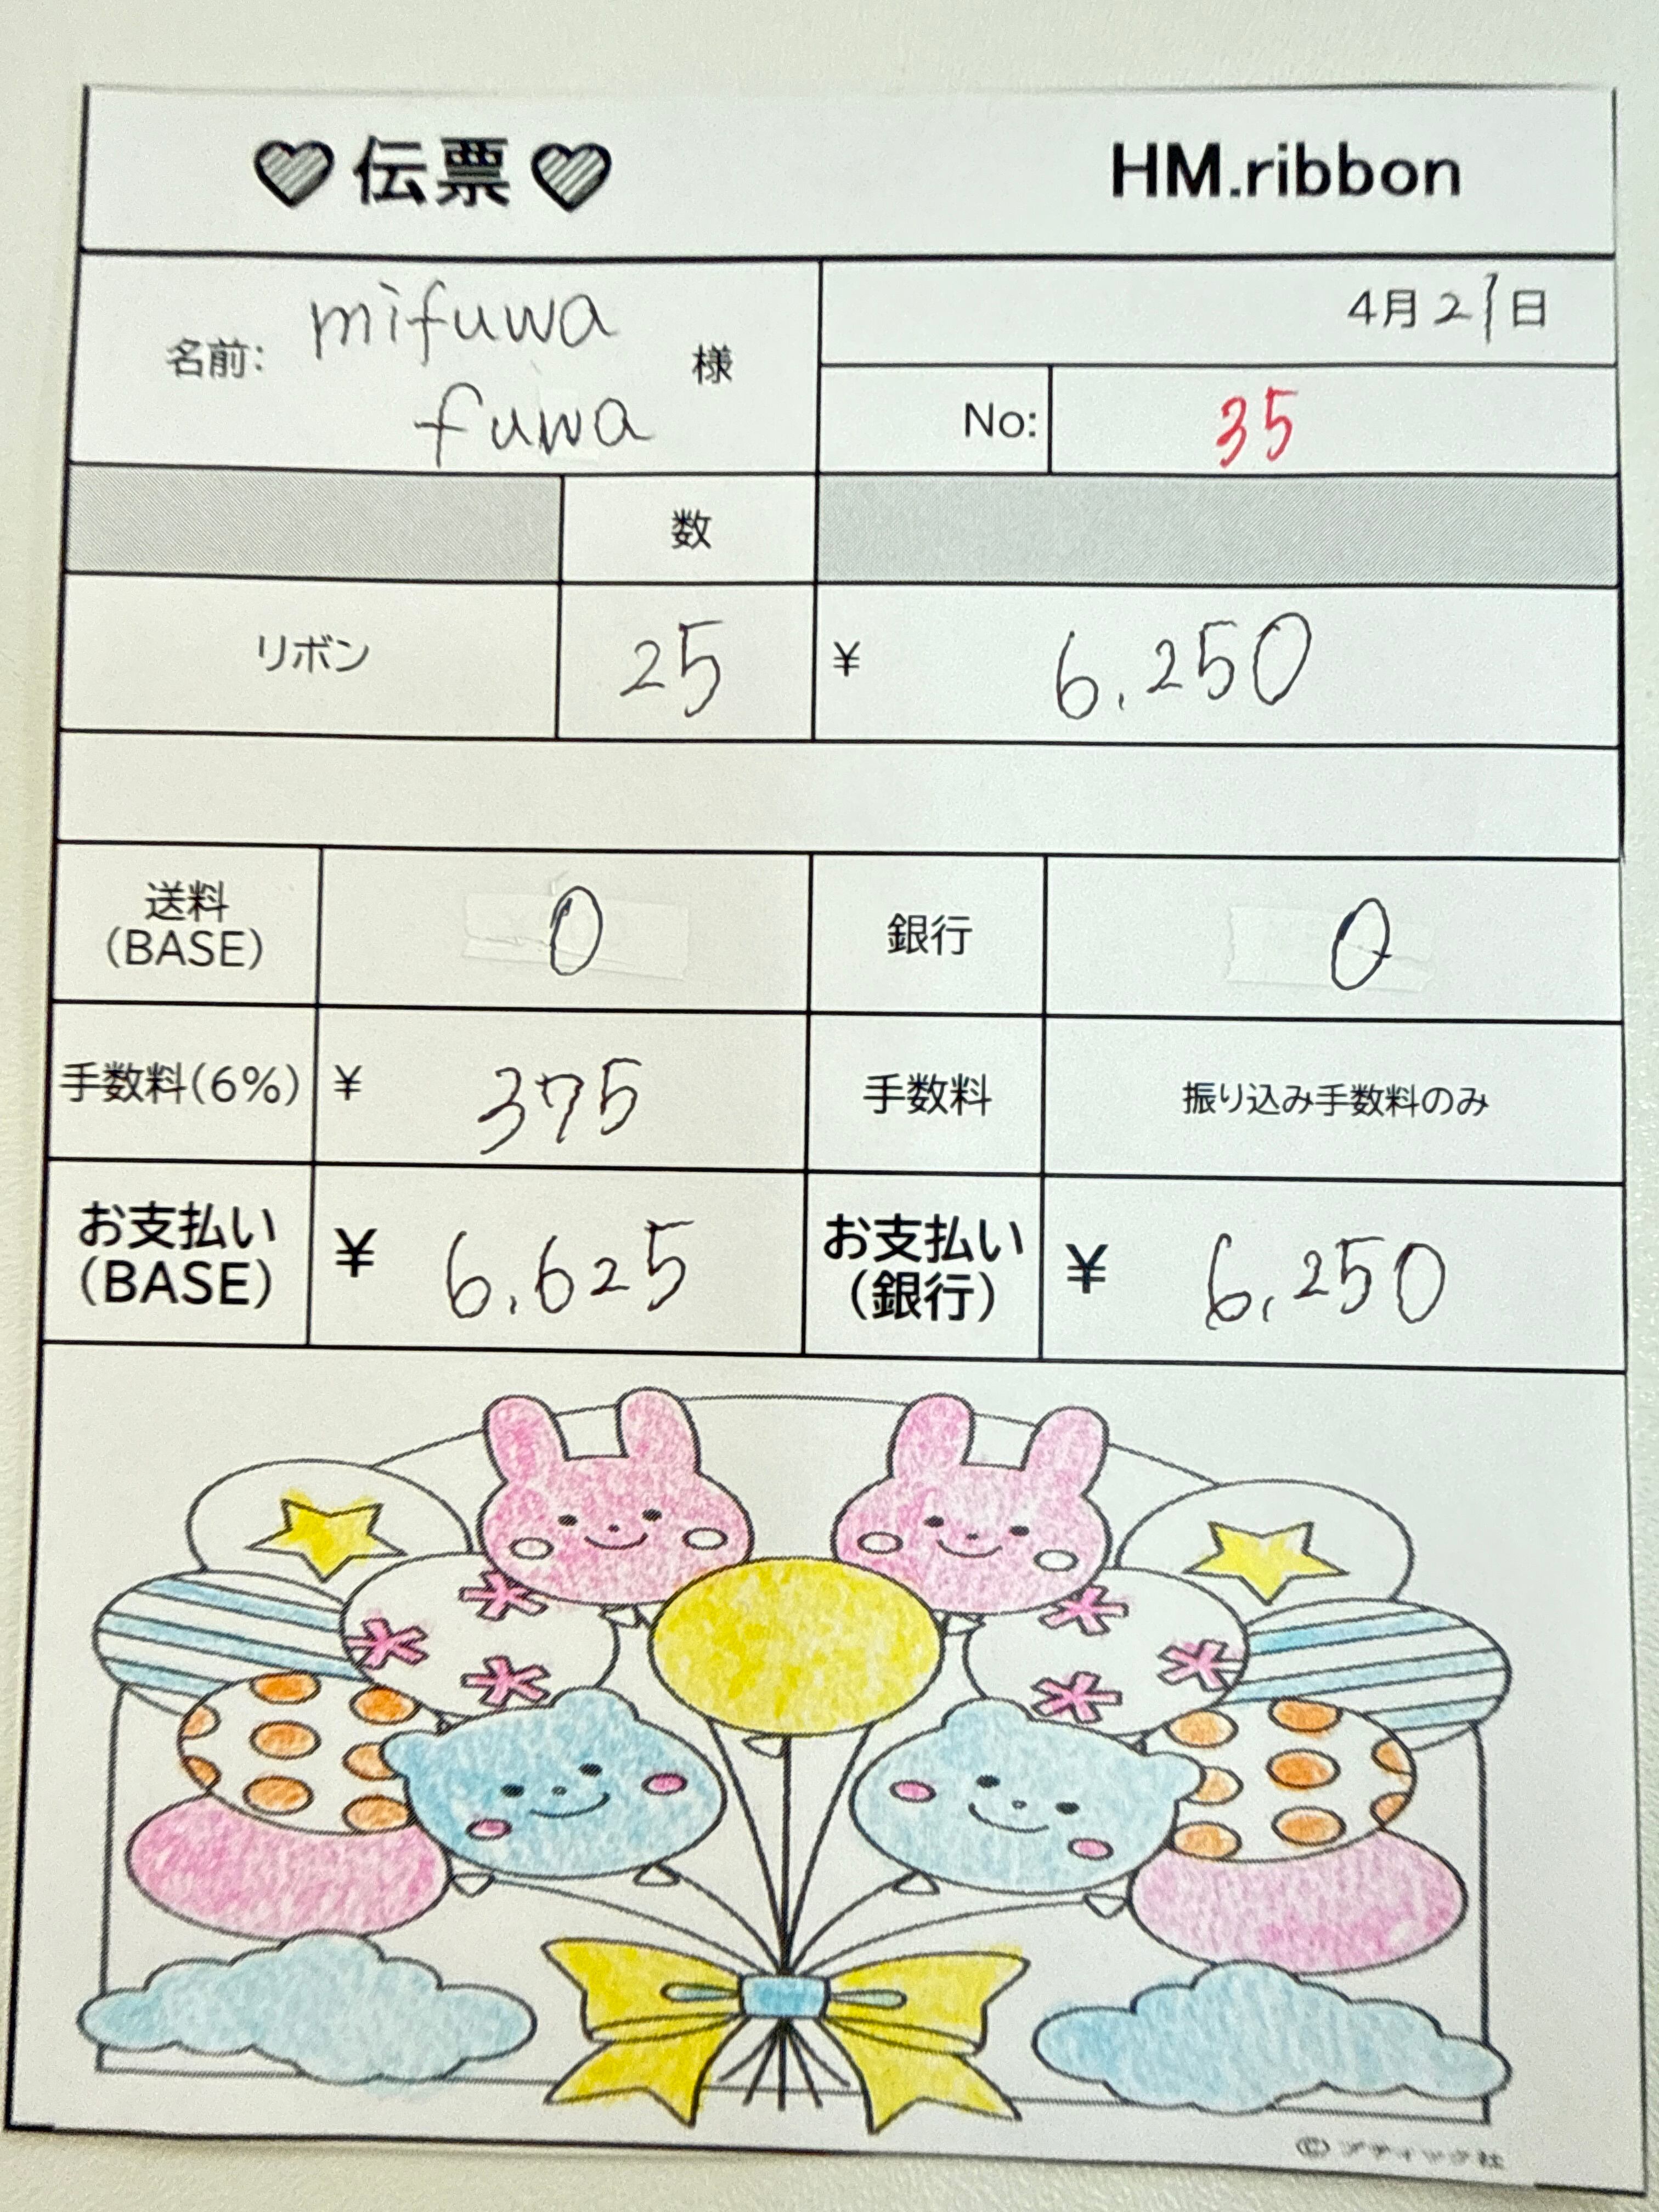 伝票 HM.ribbon
4月21日
名前: mifuwa
fuwa 様
No: 35
数
リボン 25 ¥ 6.250
送料
(BASE) 0 銀行 0
手数料(6%) ¥ 375 手数料 振り込み手数料のみ
お支払い
(BASE) ¥ 6.625 お支払い
(銀行) ¥ 6,250
© ブティック社